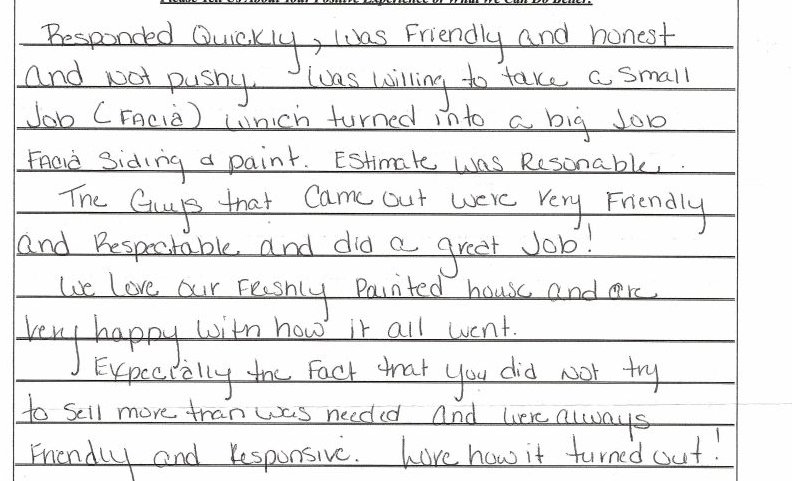 Please Tell Us About Your Positive Experience or What We Can Do Better:
Responded Quickly, Was Friendly and honest
and Not pushy. Was willing to take a small
Job (FAcia) which turned into a big Job
FAcia Siding & paint. Estimate was Resonable.
The Guys that Came out were very Friendly
and Respectable and did a great Job!
We love our FReshly Painted house and are
very happy with how it all went.
Expecially the Fact that you did Not try
to sell more than was needed and were always
Friendly and Responsive. Love how it turned out!